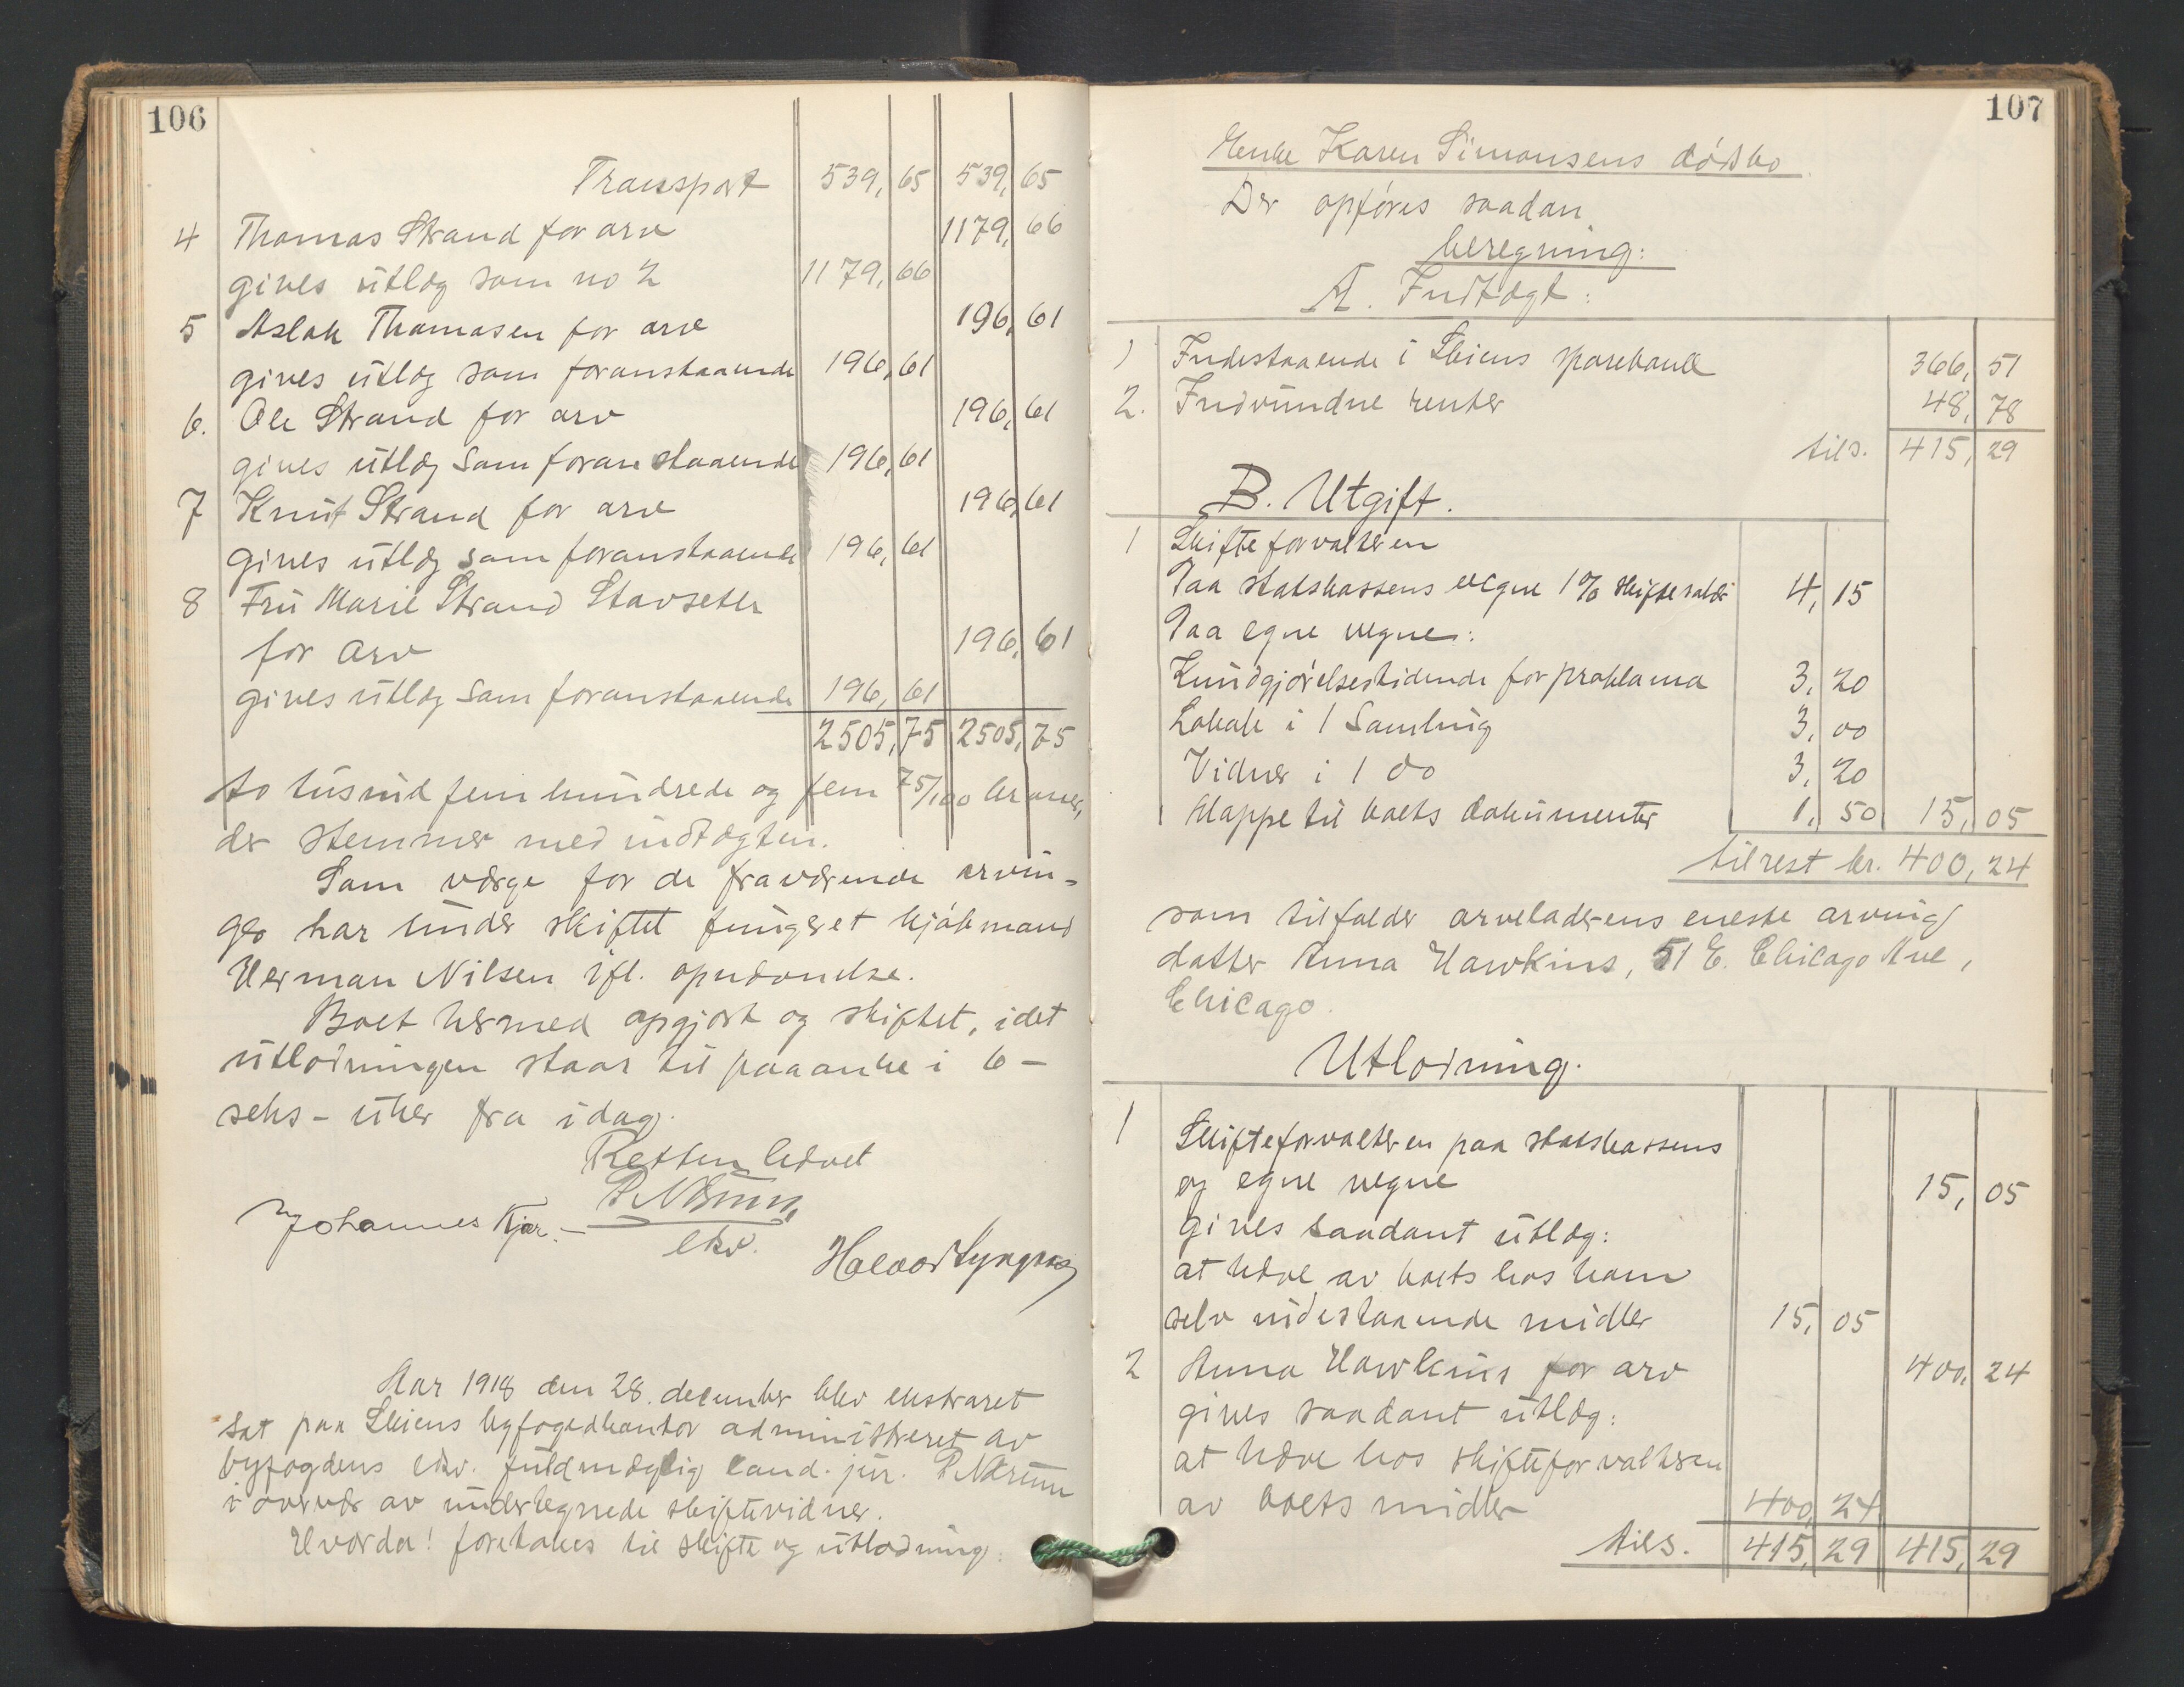 106
Transport 539,65 539,65
4 Thomas Strand for arv 1179,66
gives utlæg som no 2 1179,66
5 Aslak Thomasen for arv 196,61
gives utlæg som foranstaaende 196,61
6. Ole Strand for arv 196,61
gives utlæg som foranstaaende 196,61
7 Knut Strand for arv 196,61
gives utlæg som foranstaaende 196,61
8 Fru Marie Strand Stavseth
for arv 196,61
gives utlæg som foranstaaende 196,61
2505,75 2505,75
to tusind fem hundrede og fem 75/100 kroner,
der stemmer med indtægten.
Som værge for de fraværende arvin-
ger har under skiftet fungeret kjøbmand
Herman Nilsen ifl. opnævnelse.
Boet hermed opgjort og skiftet, idet
utlodningen staar til paaanke i 6 -
seks - uker fra idag.
Retten hævet
P Nærum
Johannes Kjær.
eks.
Halvor
Aar 1918 den 28. december blev ekstraret
sat paa Skiens byfogedkontor administreret av
byfogdens eks. fuldmægtig cand. jur. P Nærum
i overvær av undertegnede skiftevidner.
Hvorda! foretokes til skifte og utlodning:
107
Enke Karen Simonsens dødsbo
Der opføres saadan
beregning:
A. Indtægt:
1 Indestaaende i Skiens sparebank 366,51
2. Indvundne renter 48,78
tils. 415,29
B. Utgift.
1 Skifteforvalteren
Paa statskassens vegne 1% skifteavgift 4,15
Paa egne vegne:
Kundgjørelsestidende for proklama 3,20
Lokale i 1 Samling 3,00
Vidner i 1 do 3,20
Mappe til boets dokumenter 1,50 15,05
til rest kr. 400,24
som tilfalder arveladerens eneste arving
datter Anna Hawkins, 51 E. Chicago Ave,
Chicago.
Utlodning.
1 Skifteforvalteren paa statskassens
og egne vegne 15,05
gives saadant utlæg:
at hæve av boets hos ham
selv indestaaende midler 15,05
2 Anna Hawkins for arv 400,24
gives saadant utlæg:
at hæve hos skifteforvalteren
av boets midler 400,24
tils. 415,29 415,29